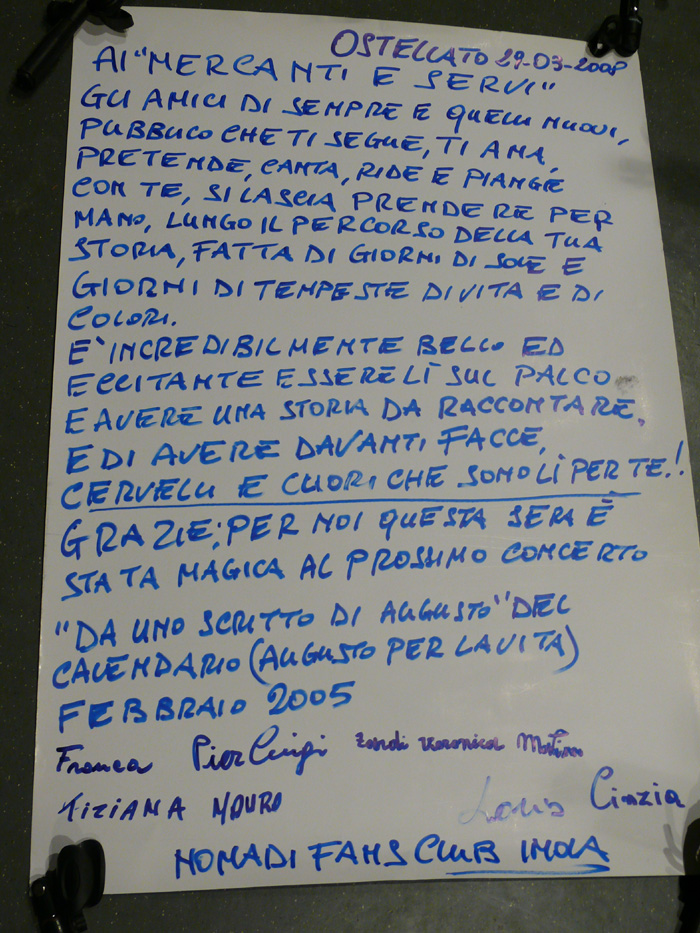 OSTELLATO 29-03-2008
AI "MERCANTI E SERVI"
GLI AMICI DI SEMPRE E QUELLI NUOVI,
PUBBLICO CHE TI SEGUE, TI AMA,
PRETENDE, CANTA, RIDE E PIANGE
CON TE, SI LASCIA PRENDERE PER
MANO, LUNGO IL PERCORSO DELLA TUA
STORIA, FATTA DI GIORNI DI SOLE E
GIORNI DI TEMPESTE DI VITA E DI
COLORI.
E` INCREDIBILMENTE BELLO ED
ECCITANTE ESSERE LÌ SUL PALCO
E AVERE UNA STORIA DA RACCONTARE,
E DI AVERE DAVANTI FACCE,
CERVELLI E CUORI CHE SONO LÌ PER TE.!
GRAZIE; PER NOI QUESTA SERA È
STATA MAGICA AL PROSSIMO CONCERTO
"DA UNO SCRITTO DI AUGUSTO" DEL
CALENDARIO (AUGUSTO PER LA VITA)
FEBBRAIO 2005
Franca Pier Luigi Veronica
TIZIANA MAURO Loris Cinzia
NOMADI FANS CLUB IMOLA